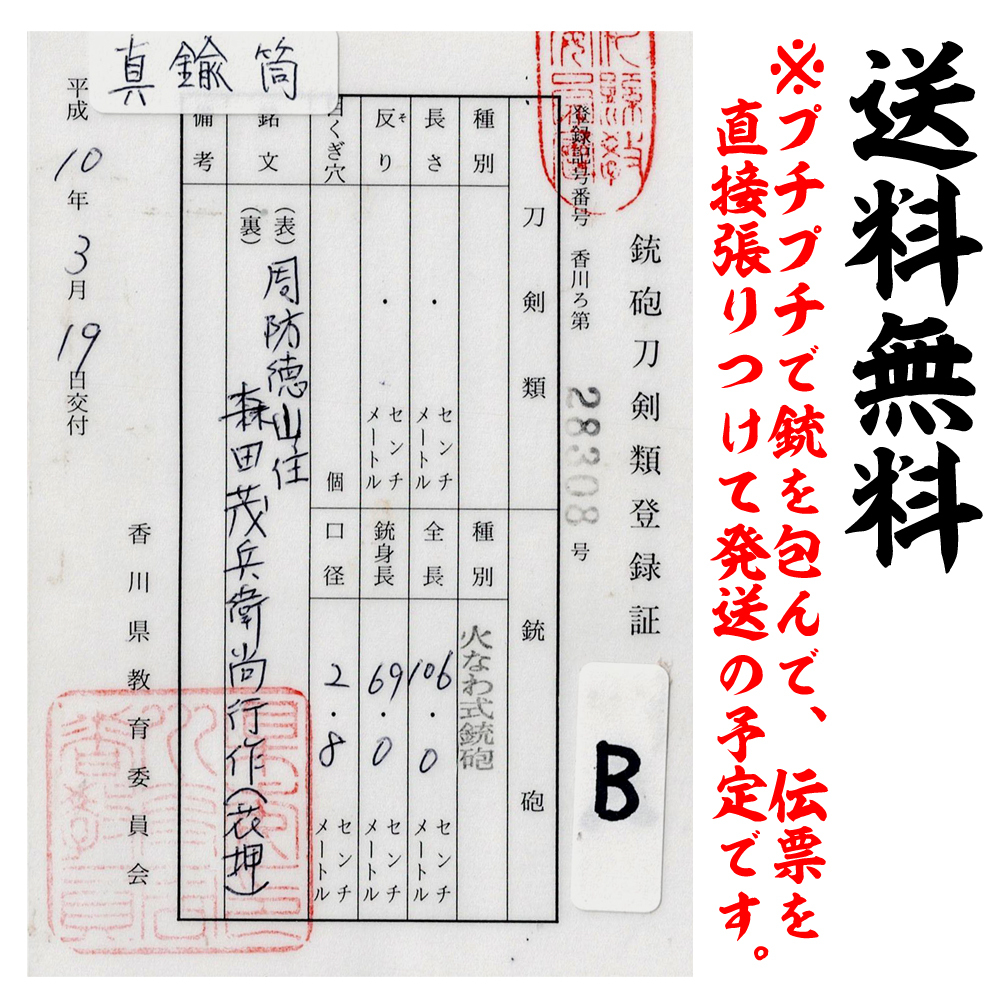 送料無料
※プチプチで銃を包んで、伝票を
直接張りつけて発送の予定です。
銃砲刀剣類登録証
登録記号番号 香川ろ第 28308 号
刀剣類
種別
長さ ・ センチメートル
反り ・ センチメートル
目くぎ穴 個
銃砲
種別 火なわ式銃砲
全長 106・0 センチメートル
銃身長 69・0 センチメートル
口径 2・8 センチメートル
銘文
(表) 周防徳山住
(裏) 森田茂兵衛尚行作(花押)
備考
真鍮筒
平成10年3月19日交付
香川県教育委員会
B